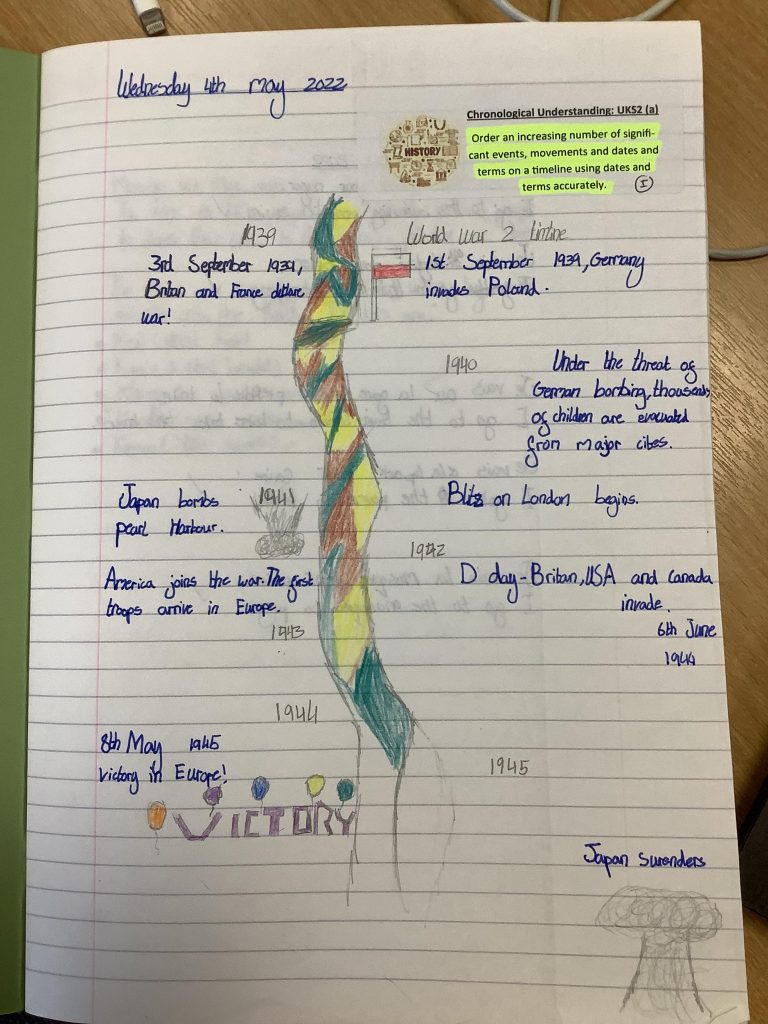 Wednesday 4th May 2022
Chronological Understanding: UKS2 (a)
HISTORY
Order an increasing number of signifi-
cant events, movements and dates and
terms on a timeline using dates and
terms accurately.
I
1939
World War 2 timline
3rd September 1939,
Britan and France declare
war!
1st September 1939, Germany
invades Poland.
1940
Under the threat of
German bombing, thousends
of children are evacuated
from major cites.
Japan bombs
pearl Harbour.
1941
Blitz on London begins.
1942
America joins the war. The first
troops arrive in Europe.
D day-Britan, USA and Canada
invade.
6th June
1944
1943
1944
8th May 1945
victory in Europe!
1945
VICTORY
Japan surenders